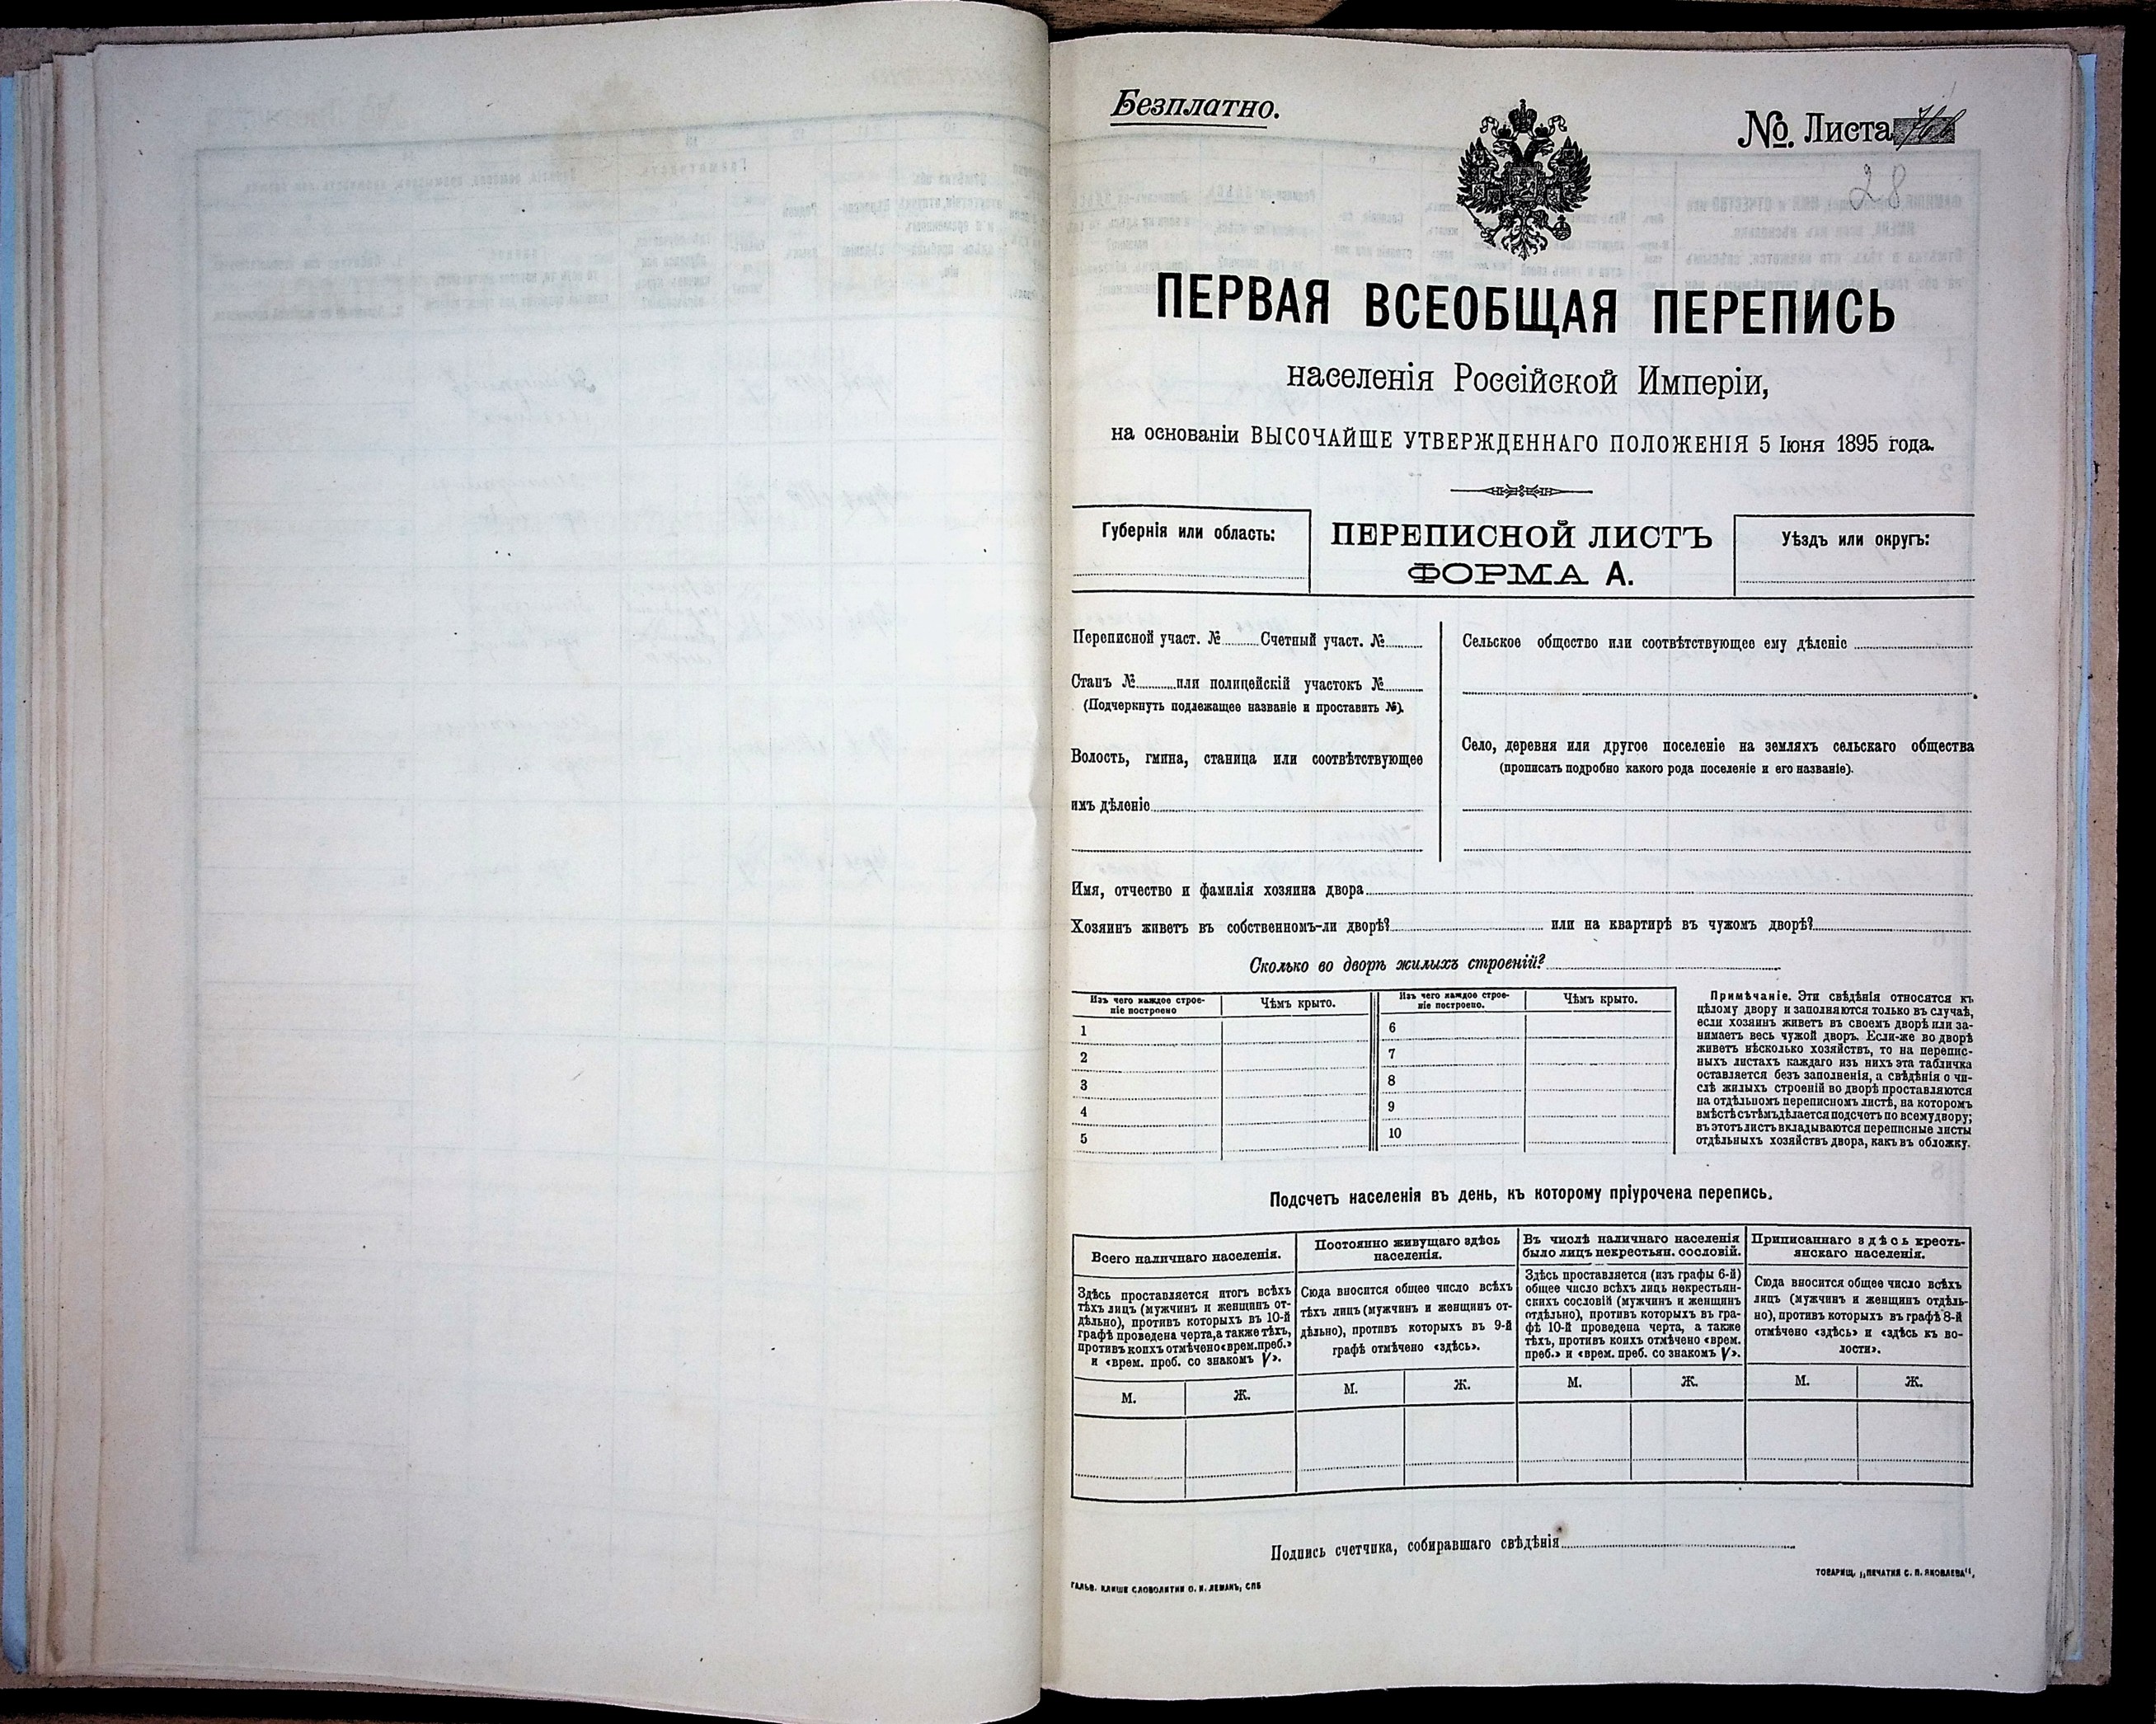 Безплатно.
№ Листа
28
ПЕРВАЯ ВСЕОБЩАЯ ПЕРЕПИСЬ
населенія Россійской Имперіи,
на основаніи ВЫСОЧАЙШЕ УТВЕРЖДЕННАГО ПОЛОЖЕНІЯ 5 Іюня 1895 года.
Губернія или область:
ПЕРЕПИСНОЙ ЛИСТЪ
ФОРМА А.
Уѣздъ или округъ:
Переписной участ. № Счетный участ. №
Станъ № или полицейскій участокъ №
(Подчеркнуть подлежащее названіе и проставить №).
Волость, гмина, станица или соотвѣтствующее
имъ дѣленіе
Сельское общество или соотвѣтствующее ему дѣленіе
Село, деревня или другое поселеніе на земляхъ сельскаго общества
(прописать подробно какого рода поселеніе и его названіе).
Имя, отчество и фамилія хозяина двора
Хозяинъ живетъ въ собственномъ-ли дворѣ? или на квартирѣ въ чужомъ дворѣ?
Сколько во дворѣ жилыхъ строеній?
Изъ чего каждое строе-
ніе построено
Чѣмъ крыто.
1
2
3
4
5
Изъ чего каждое строе-
ніе построено.
Чѣмъ крыто.
6
7
8
9
10
Примѣчаніе. Эти свѣдѣнія относятся къ
цѣлому двору и заполняются только въ случаѣ,
если хозяинъ живетъ въ своемъ дворѣ или за-
нимаетъ весь чужой дворъ. Если-же во дворѣ
живетъ нѣсколько хозяйствъ, то на перепис-
ныхъ листахъ каждаго изъ нихъ эта табличка
оставляется безъ заполненія, а свѣдѣнія о чи-
слѣ жилыхъ строеній во дворѣ проставляются
на отдѣльномъ переписномъ листѣ, на которомъ
вмѣстѣ съ тѣмъ дѣлается подсчетъ по всему двору;
въ этотъ листъ вкладываются переписные листы
отдѣльныхъ хозяйствъ двора, какъ въ обложку.
Подсчетъ населенія въ день, къ которому пріурочена перепись.
Всего наличнаго населенія.
Здѣсь проставляется итогъ всѣхъ
тѣхъ лицъ (мужчинъ и женщинъ от-
дѣльно), противъ которыхъ въ 10-й
графѣ проведена черта, а также тѣхъ,
противъ коихъ отмѣчено «врем. преб.»
и «врем. проб. со знакомъ V».
М. Ж.
Постоянно живущаго здѣсь
населенія.
Сюда вносится общее число всѣхъ
тѣхъ лицъ (мужчинъ и женщинъ от-
дѣльно), противъ которыхъ въ 9-й
графѣ отмѣчено «здѣсь».
М. Ж.
Въ числѣ наличнаго населенія
было лицъ некрестьян. сословій.
Здѣсь проставляется (изъ графы 6-й)
общее число всѣхъ лицъ некрестьян-
скихъ сословій (мужчинъ и женщинъ
отдѣльно), противъ которыхъ въ гра-
фѣ 10-й проведена черта, а также
тѣхъ, противъ коихъ отмѣчено «врем.
преб.» и «врем. преб. со знакомъ V».
М. Ж.
Приписаннаго здѣсь кресть-
янскаго населенія.
Сюда вносится общее число всѣхъ
лицъ (мужчинъ и женщинъ отдѣль-
но), противъ которыхъ въ графѣ 8-й
отмѣчено «здѣсь» и «здѣсь къ во-
лости».
М. Ж.
Подпись счетчика, собиравшаго свѣдѣнія
ГАЛЬВ. КЛИШЕ СЛОВОЛИТНИ О. И. ЛЕМАНЪ, СПБ
ТОВАРИЩ. „ПЕЧАТНЯ С. П. ЯКОВЛЕВА“.